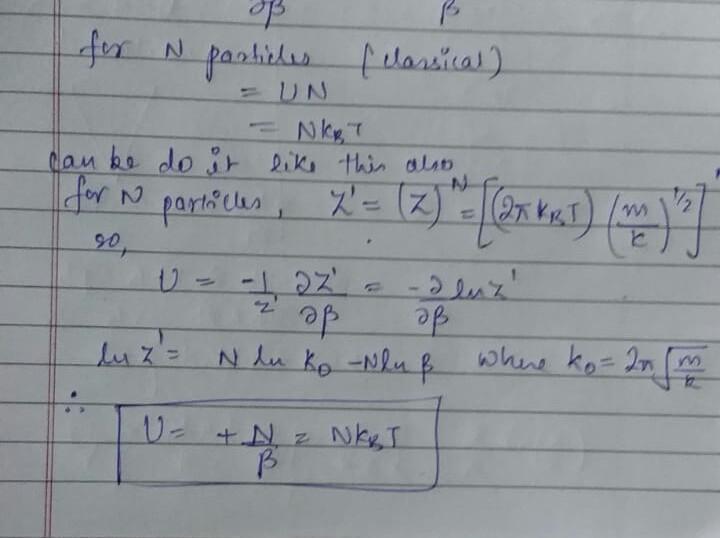 ∂β β
for N particles (classical)
= UN
= NkBT
can be do it like this also
for N particles, Z' = (Z)^N = [(2π kBT) (m/k)^1/2]
so,
U = -1/Z' ∂Z'/∂β = -∂/∂β ln Z'
ln Z' = N ln k0 - N ln β where k0 = 2π √(m/k)
∴ U = + N/β = NkBT